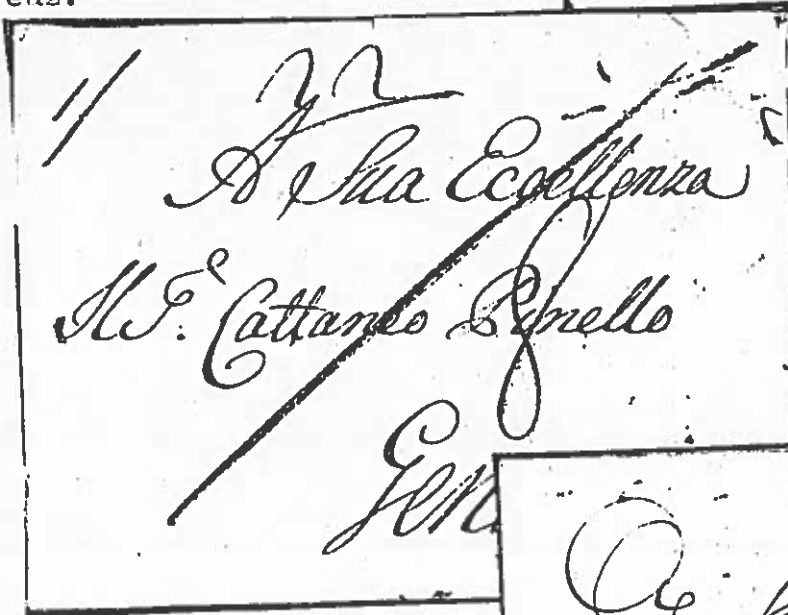 ena.
A Sua Eccellenza
Il P.e Cattaneo Pinello
Gen